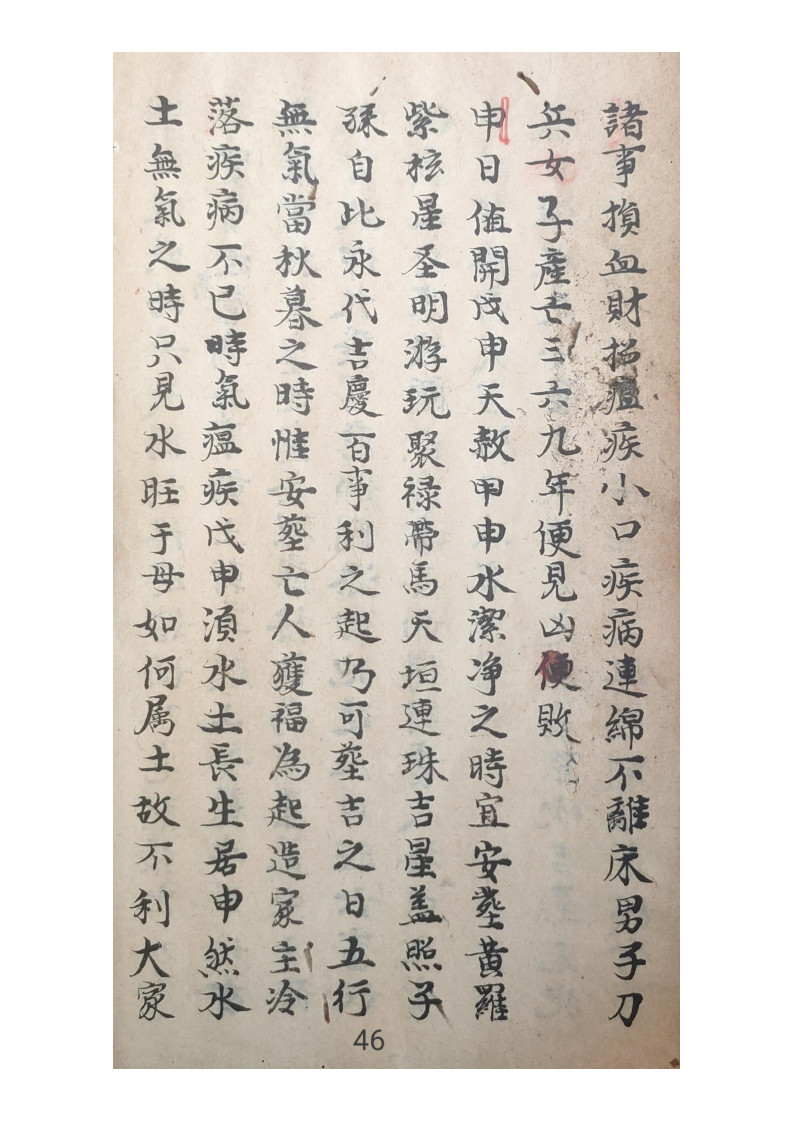 諸事損血財招瘟疾小口疾病連綿不離床男子刀
兵女子產亡三六九年便見凶便敗
申日值開戊申天赦甲申水潔净之時宜安塟黃羅
紫桉星圣明游玩聚禄帶馬天垣連珠吉星盖照子
孫自此永代吉慶百事利之起乃可塟吉之日五行
無氣當秋暮之時惟安塟亡人獲福為起造家主冷
落疾病不已時氣瘟疾戊申湏水土長生居申然水
土無氣之時只見水旺于母如何属土故不利大家
46